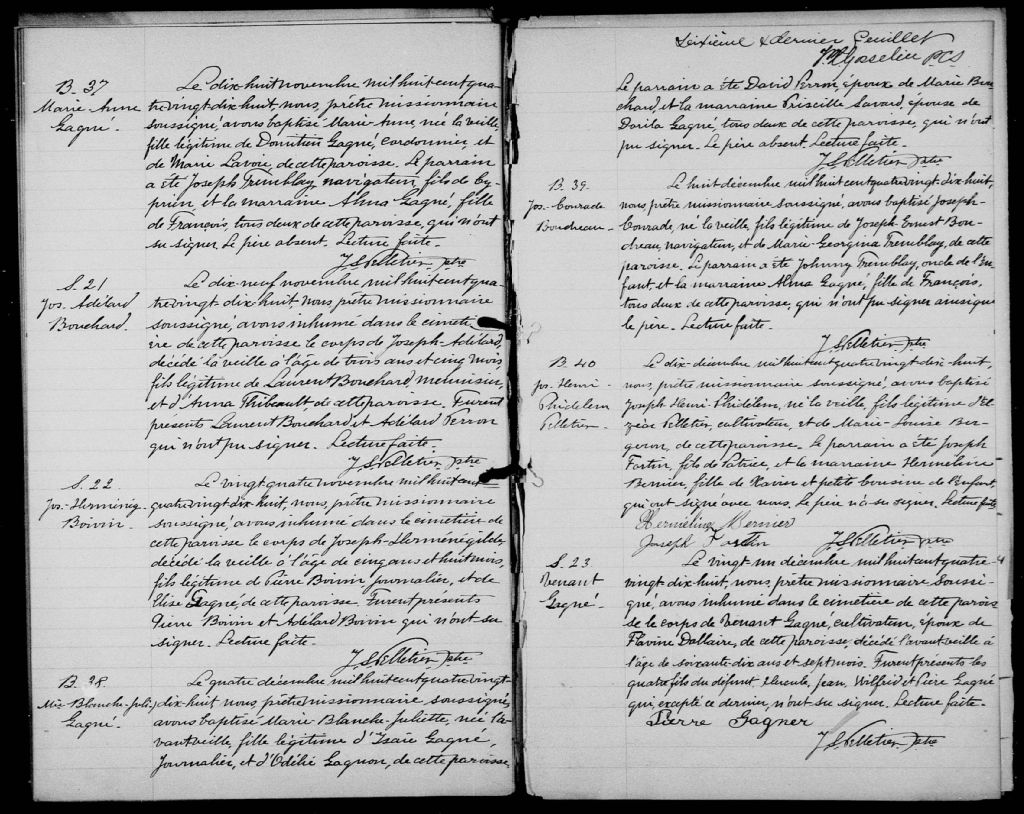 B. 37
Marie-Anne
Gagné.
Le dix-huit novembre mil huit cent qua-
tre vingt dix huit, nous, prêtre missionnaire
soussigné, avons baptisé Marie-Anne, née la veille,
fille légitime de Domitien Gagné, cordonnier, et
de Marie Lavoie, de cette paroisse. Le parrain
a été Joseph Tremblay, navigateur, fils de Cy-
prien, et la marraine Alma Gagné, fille
de François, tous deux de cette paroisse, qui n'ont
su signer. Le père absent. Lecture faite.
J S Pelletier, ptre
S. 21
Jos. Adélard
Bouchard.
Le dix neuf novembre mil huit cent qua-
tre vingt dix huit, nous prêtre missionnaire
soussigné, avons inhumé dans le cimetiè-
re de cette paroisse le corps de Joseph-Adélard,
décédé la veille à l'âge de trois ans et cinq mois,
fils légitime de Laurent Bouchard, menuisier,
et d'Anna Thibeault, de cette paroisse. Furent
présents Laurent Bouchard et Adélard Perron
qui n'ont pu signer. Lecture faite.
J S Pelletier, ptre
S. 22
Jos-Herménég
Boivin.
Le vingt quatre novembre mil huit cent
quatre vingt dix-huit, nous, prêtre missionnaire
soussigné, avons inhumé dans le cimetière de
cette paroisse le corps de Joseph-Herménégilde,
décédé la veille à l'âge de cinq ans et huit mois,
fils légitime de Pierre Boivin journalier, et de
Elise Gagné, de cette paroisse. Furent présents
Pierre Boivin et Adélard Boivin qui n'ont su
signer. Lecture faite.
J S Pelletier ptre
B. 38
Mie Blanche-Juli.
Gagné.
Le quatre décembre mil huit cent quatre vingt-
dix-huit nous prêtre missionnaire soussigné,
avons baptisé Marie Blanche-Juliette, née l'a-
vant veille, fille légitime d'Isaïe Gagné,
journalier, et d'Odélie Gagnon, de cette paroisse.
Seixième & dernier feuillet
Gosselin PCS
Le parrain a été David Perron, époux de Marie Bou-
chard, et la marraine Priscille Savard, épouse de
Dorila Gagné, tous deux de cette paroisse, qui n'ont
pu signer. Le père absent. Lecture faite.
J S Pelletier ptre
B. 39.
Jos-Conrade
Boudreau.
Le huit décembre mil huit cent quatre vingt-dix-huit,
nous, prêtre missionnaire soussigné, avons baptisé Joseph-
Conrade, né la veille, fils légitime de Joseph-Ernest Bou-
dreau, navigateur, et de Marie-Georgina Tremblay, de cette
paroisse. Le parrain a été Johnny Tremblay, oncle de l'en-
fant et la marraine Alma Gagné, fille de François,
tous deux de cette paroisse, qui n'ont pu signer ainsi que
le père. Lecture faite.
J. S Pelletier ptre
B. 40
Jos-Henri-
Phidelem
Pelletier.
Le dix-décembre mil huit cent quatre vingt-dix-huit,
nous, prêtre missionnaire soussigné, avons baptisé
Joseph Henri-Phidelem, né la veille, fils légitime d'El-
zéar Pelletier, cultivateur, et de Marie-Louise Ber-
geron, de cette paroisse. Le parrain a été Joseph
Fortin, fils de Patrice, et la marraine Hermeline
Bernier, fille de Xavier et petite cousine de l'enfant,
qui ont signé avec nous. Le père n'a su signer. Lecture faite
Hermeline Bernier
Joseph Fortin J S Pelletier ptre
S. 23
Venant
Gagné.
Le vingt un décembre mil huit cent quatre
vingt dix huit, nous, prêtre missionnaire soussi-
gné, avons inhumé dans le cimetière de cette parois
se le corps de Venant Gagné, cultivateur, époux de
Flavine Dallaire, de cette paroisse, décédé l'avant veille à
l'âge de soixante-dix ans et sept mois. Furent présents les
quatre fils du défunt Jean, Wilfrid et Pierre Gagné
qui, excepté ce dernier, n'ont su signer. Lecture faite.
Pierre Gagner
J S Pelletier ptre